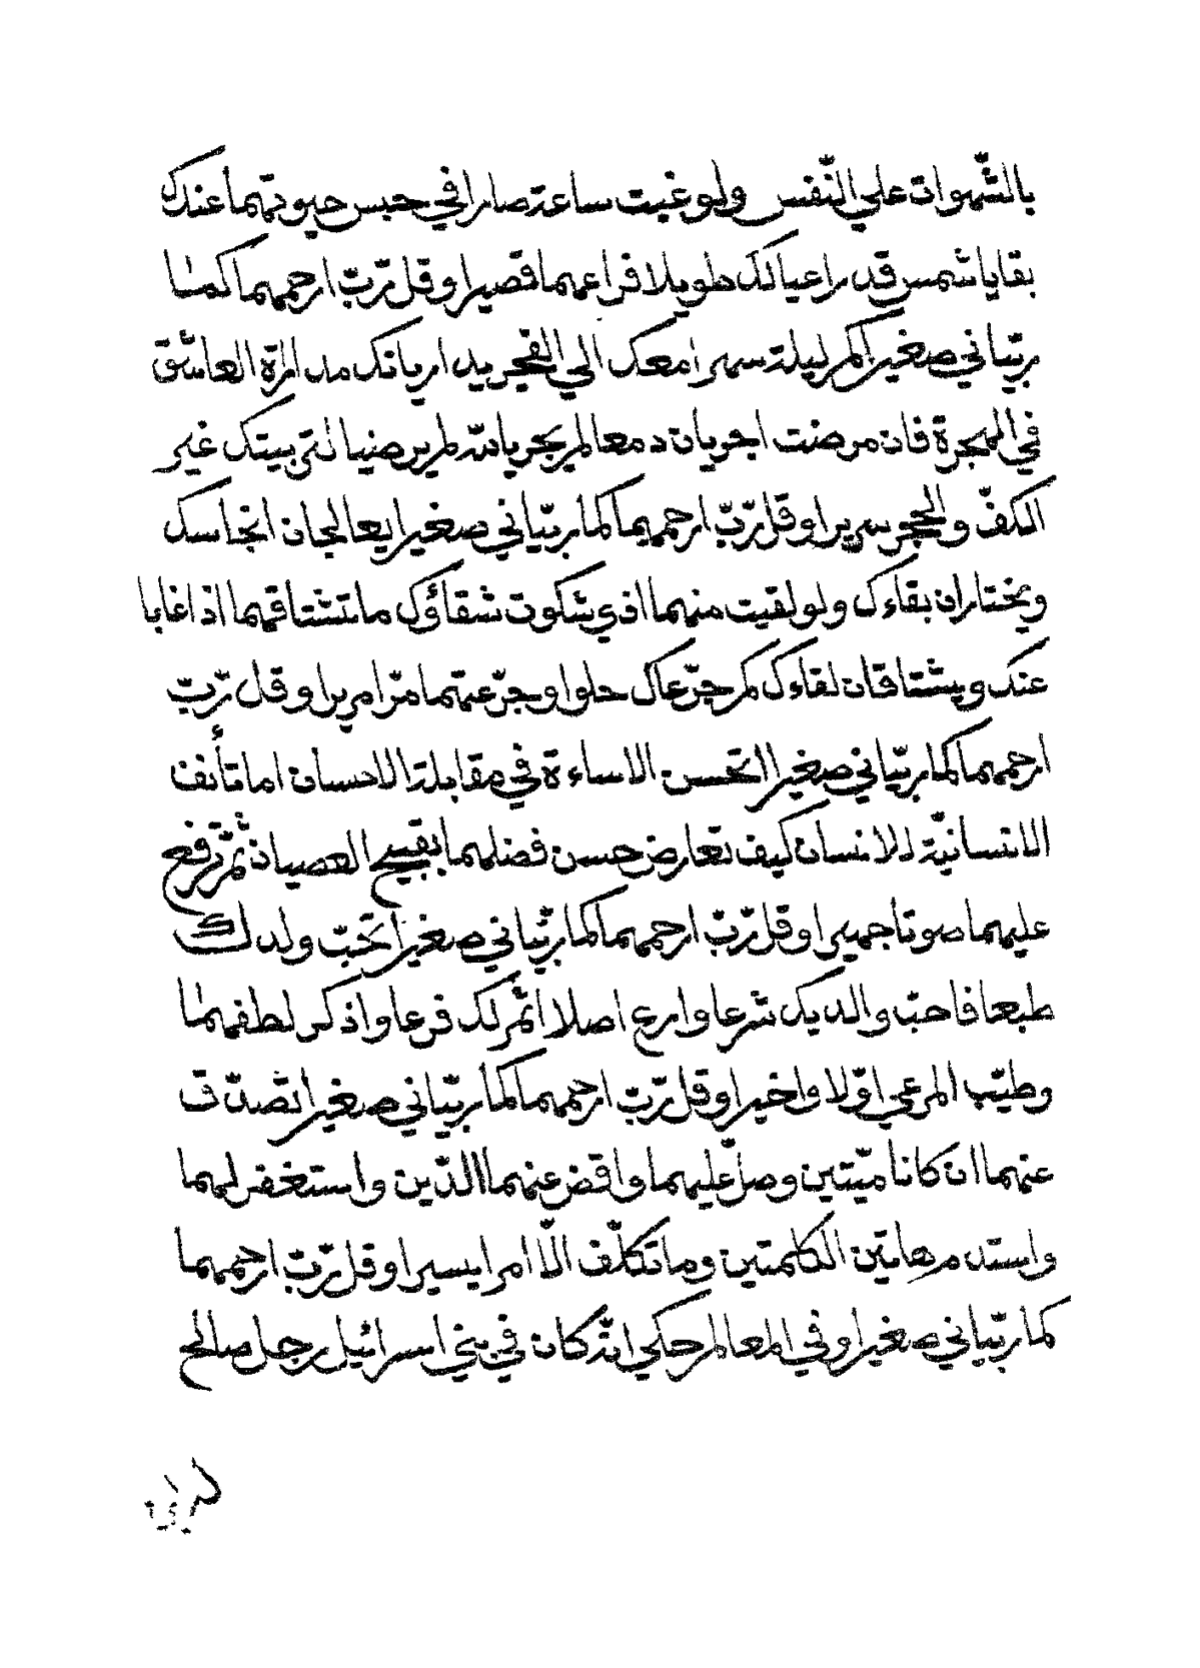 بالشّهوات علي النّفس ولو غبت ساعة صارا في حبس حيوتهما عندك
بقايا شمس قد راعياك طويلا فراعهما قصيرا وقل رّبّ ارحمهما كما
ربّياني صغيرا كم ليلة سهرا معك الي الفجر يداريانك مداراة العاشق
في الهجرة فان مرضت اجريا دمعا لم يجر يا لله لم يرضيا لتربيتك غير
الكفّ والحجر سريرا وقل رّبّ ارحمهما كما ربّياني صغيرا يعالجان انجاسك
ويختاران بقاءك ولو لقيت منهما اذي شكوت شقاؤك ما تشتاقهما اذا غابا
عنك ويشتاقان لقاءك كم جرّعاك حلوا وجرّعتهما مرّا مريرا وقل رّبّ
ارحمهما كما ربّياني صغيرا اتحسن الاساءة في مقابلة الاحسان اما تأنف
الانسانيّة للانسان كيف تعارض حسن فضلهما بقبيح العصيان ثمّ ترفع
عليهما صوتا جهيرا وقل رّبّ ارحمهما كما ربّياني صغيرا تحبّ ولدك
طبعا فاحبّ والديك شرعا وارع اصلا اثمر لك فرعا واذكر لطفهما
وطيّب المرعي اوّلا واخيرا وقل رّبّ ارحمهما كما ربّياني صغيرا تصدّق
عنهما ان كانا ميّتين وصلّ عليهما واقض عنهما الدّين واستغفر لهما
واستدم هاتين الكلمتين وما تكلّف الّا امرا يسيرا وقل رّبّ ارحمهما
كما ربّياني صغيرا وفي المعالم حكي انّه كان في بني اسرائيل رجل صالح